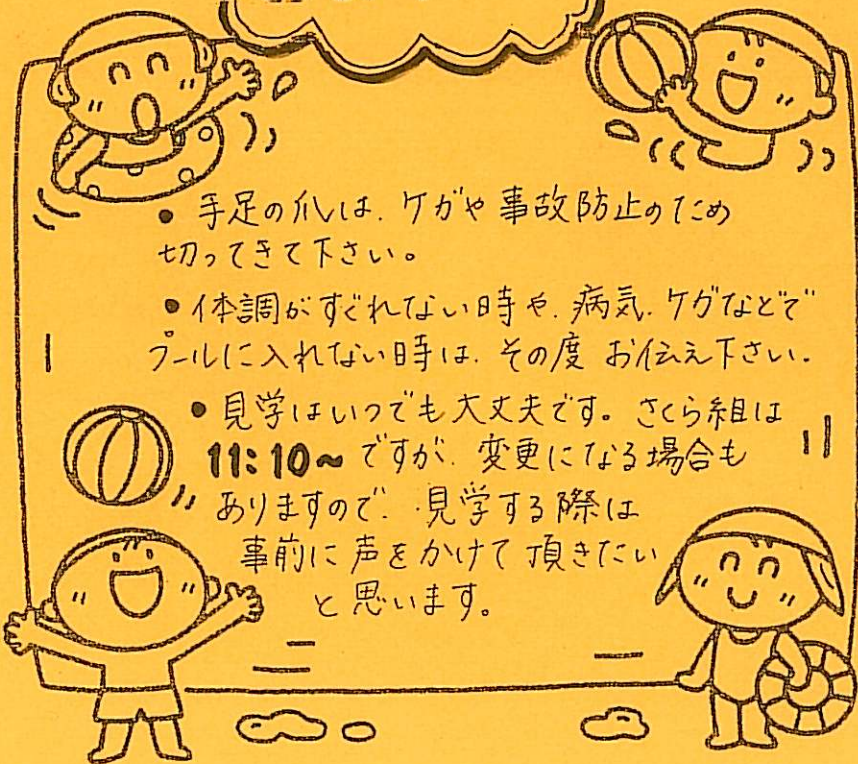 • 手足の爪は、ケガや事故防止のため
切ってきて下さい。
• 体調がすぐれない時や、病気、ケガなどで
プールに入れない時は、その度 お伝え下さい。
• 見学はいつでも大丈夫です。さくら組は
11:10~ですが、変更になる場合も
ありますので、見学する際は
事前に声をかけて頂きたい
と思います。